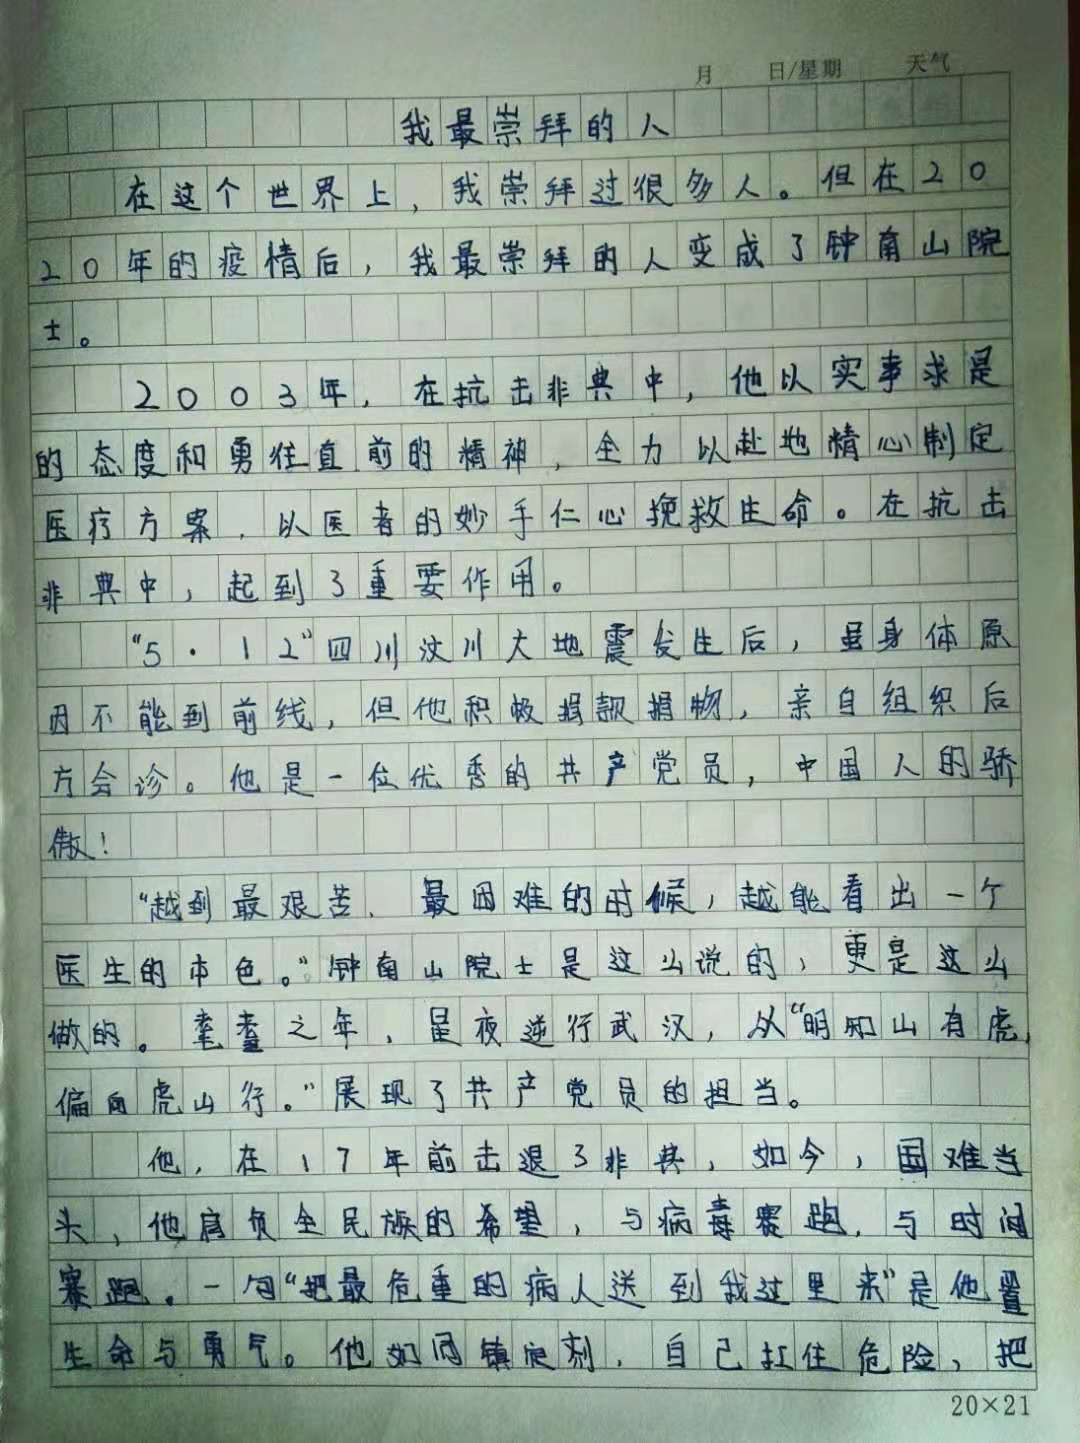 月 日/星期 天气
我最崇拜的人
在这个世界上，我崇拜过很多人。但在20
20年的疫情后，我最崇拜的人变成了钟南山院
士。
2003年，在抗击非典中，他以实事求是
的态度和勇往直前的精神，全力以赴地精心制定
医疗方案，以医者的妙手仁心挽救生命。在抗击
非典中，起到了重要作用。
“5·12”四川汶川大地震发生后，虽身体原
因不能到前线，但他积极捐款捐物，亲自组织后
方会诊。他是一位优秀的共产党员，中国人的骄
傲！
“越到最艰苦、最困难的时候，越能看出一个
医生的本色。”钟南山院士是这么说的，更是这么
做的。耄耋之年，星夜逆行武汉，以“明知山有虎，
偏向虎山行。”展现了共产党员的担当。
他，在17年前击退了非典，如今，国难当
头，他肩负全民族的希望，与病毒赛跑，与时间
赛跑。一句“把最危重的病人送到我过里来”是他置
生命与勇气。他如同镇定剂，自己扛住危险，把
20×21